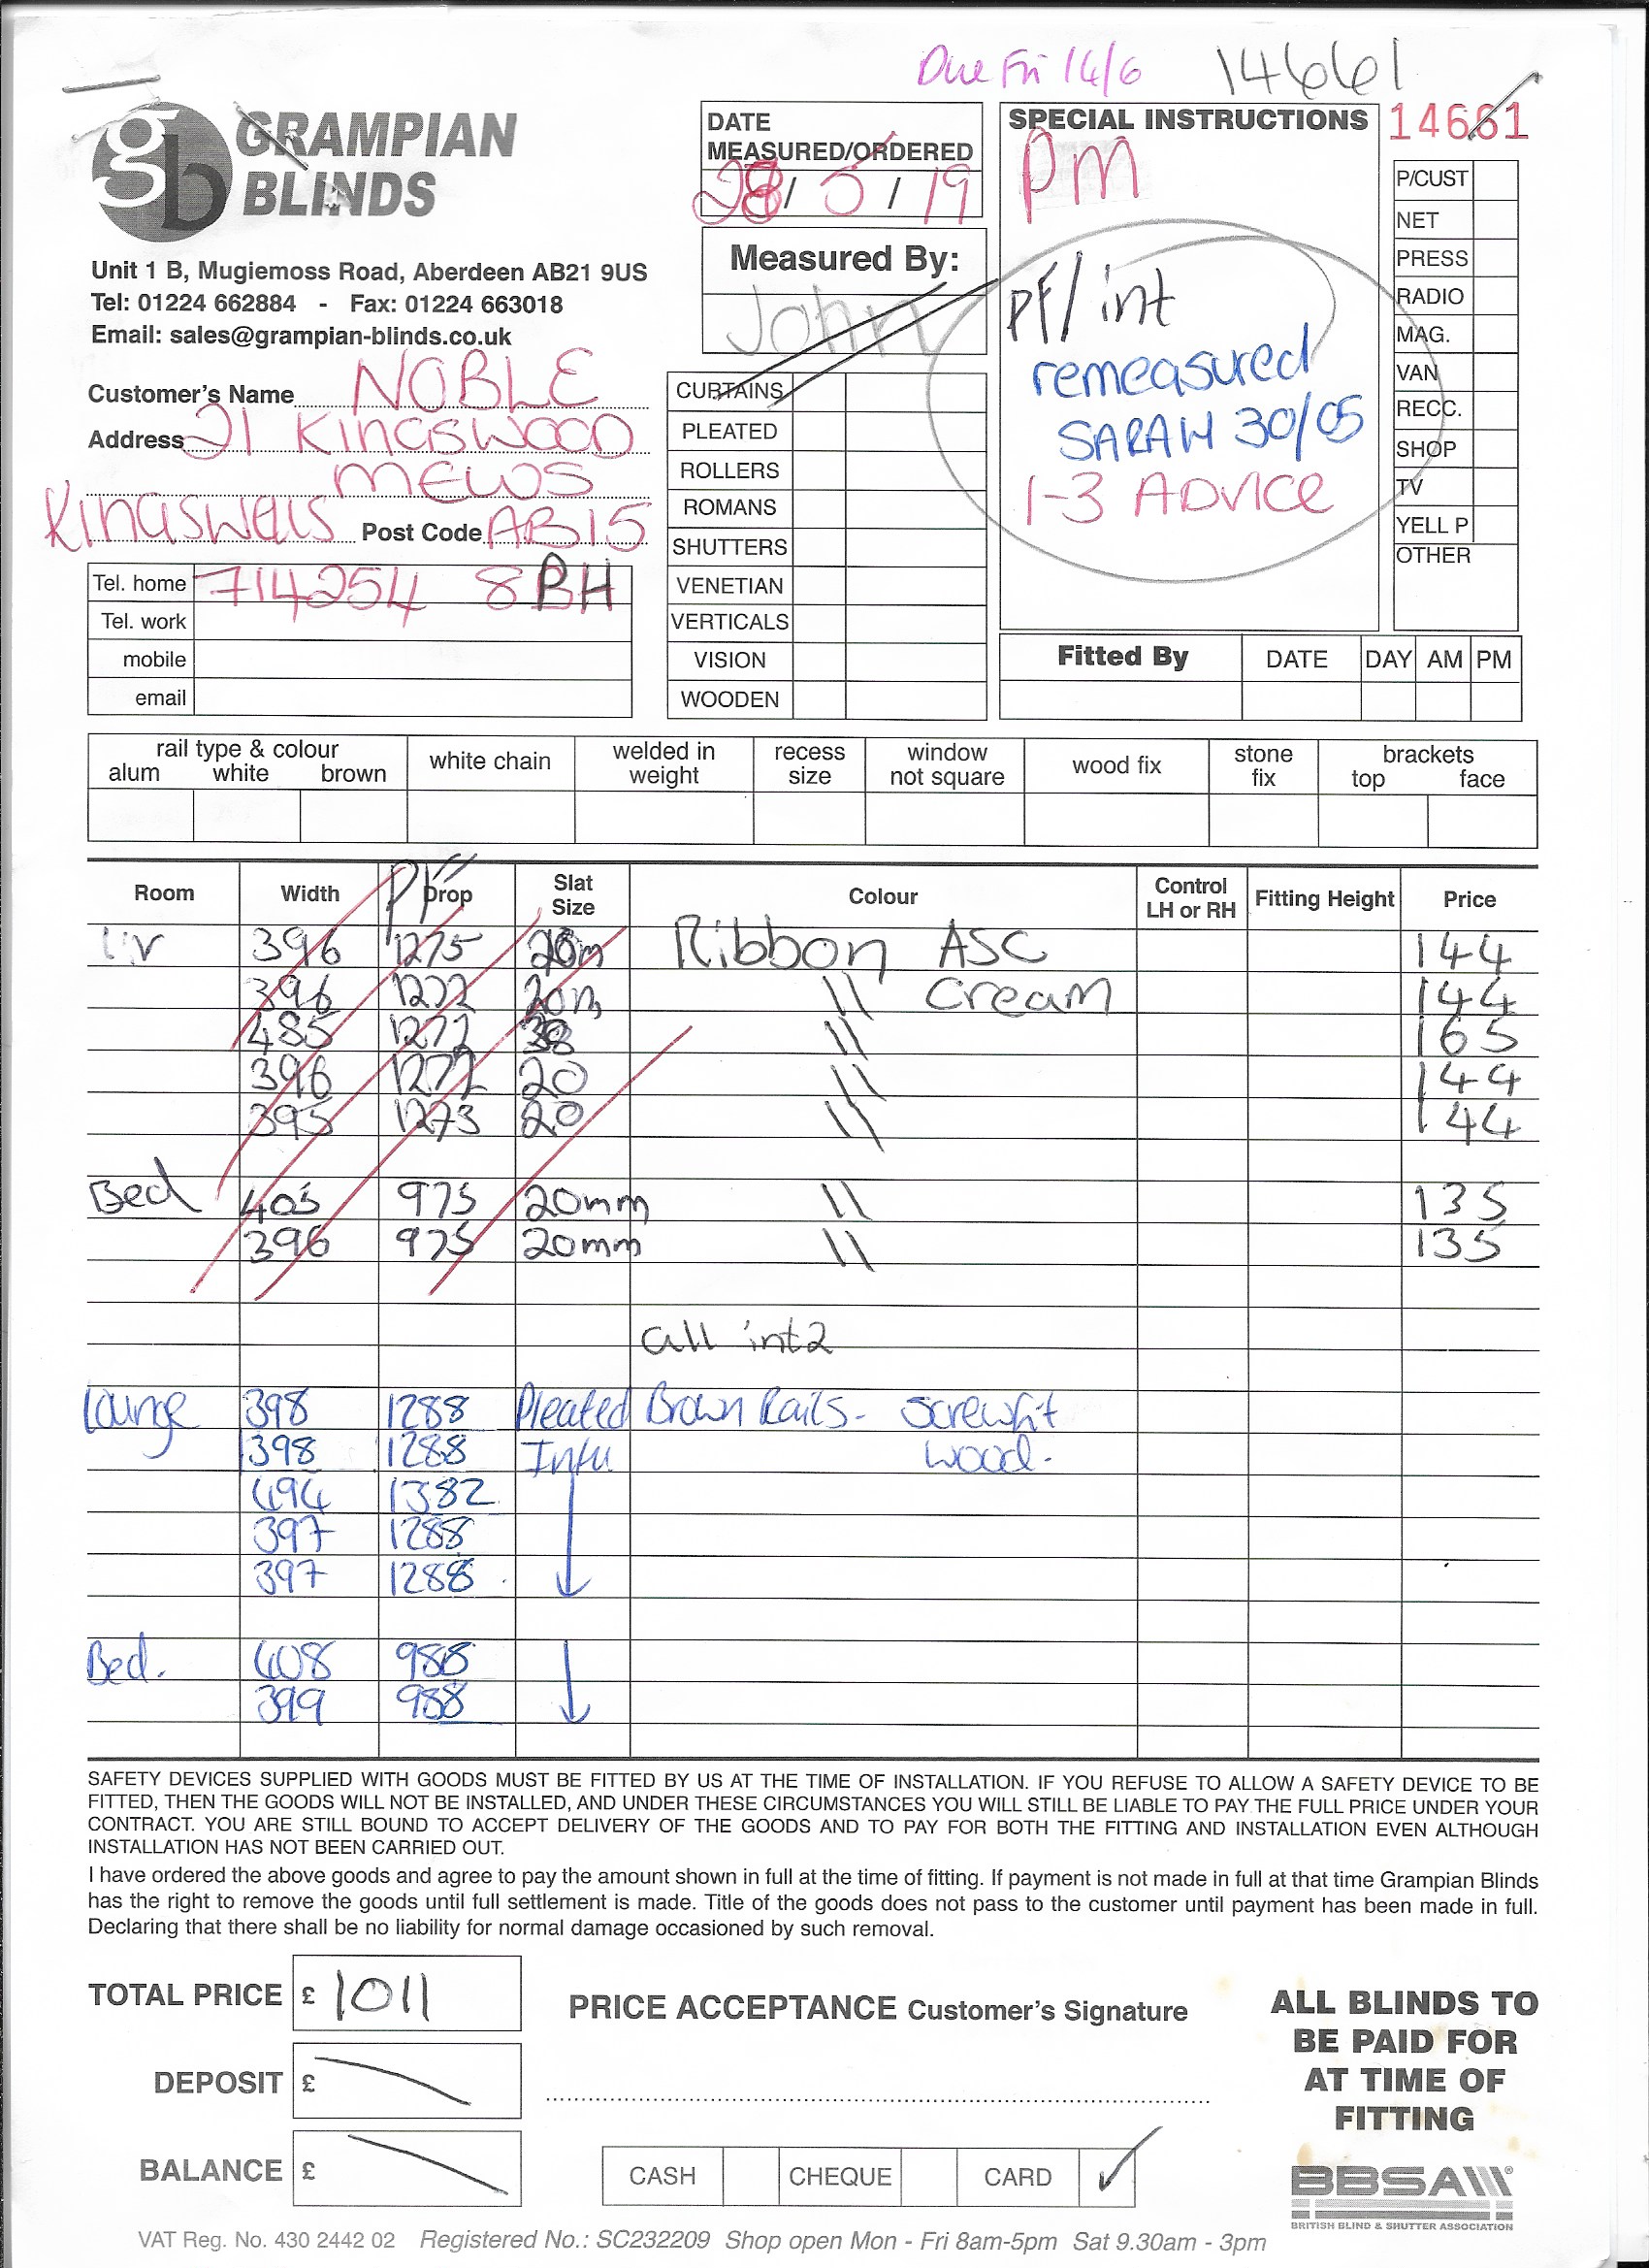 Due Fri 14/6 14661
GRAMPIAN
BLINDS
Unit 1 B, Mugiemoss Road, Aberdeen AB21 9US
Tel: 01224 662884 - Fax: 01224 663018
Email: sales@grampian-blinds.co.uk
DATE
MEASURED/ORDERED
28/5/19
Measured By:
John
SPECIAL INSTRUCTIONS
14661
PM
PF/int
remeasured
SARAH 30/05
1-3 ADVICE
P/CUST
NET
PRESS
RADIO
MAG.
VAN
RECC.
SHOP
TV
YELL P
OTHER
Customer's Name NOBLE
Address 21 KINGSWOOD
MEWS
Kingswells Post Code AB15
Tel. home 714254 8BH
Tel. work
mobile
email
CURTAINS
PLEATED
ROLLERS
ROMANS
SHUTTERS
VENETIAN
VERTICALS
VISION
WOODEN
Fitted By DATE DAY AM PM
rail type & colour
alum white brown
white chain
welded in
weight
recess
size
window
not square
wood fix
stone
fix
brackets
top face
PF
Room Width Drop Slat Size Colour Control LH or RH Fitting Height Price
Liv 396 1275 20m Ribbon ASC 144
396 1272 20m \\ Cream 144
485 1272 \\ 165
396 1272 20 \\ 144
395 1273 20 \\ 144
Bed 405 975 20mm \\ 135
396 975 20mm \\ 135
all int2
Lounge 398 1288 Pleated Brown Rails - Screwfit
398 1288 Intu wood.
494 1382
397 1288
397 1288
Bed. 408 988
399 988
SAFETY DEVICES SUPPLIED WITH GOODS MUST BE FITTED BY US AT THE TIME OF INSTALLATION. IF YOU REFUSE TO ALLOW A SAFETY DEVICE TO BE
FITTED, THEN THE GOODS WILL NOT BE INSTALLED, AND UNDER THESE CIRCUMSTANCES YOU WILL STILL BE LIABLE TO PAY THE FULL PRICE UNDER YOUR
CONTRACT. YOU ARE STILL BOUND TO ACCEPT DELIVERY OF THE GOODS AND TO PAY FOR BOTH THE FITTING AND INSTALLATION EVEN ALTHOUGH
INSTALLATION HAS NOT BEEN CARRIED OUT.
I have ordered the above goods and agree to pay the amount shown in full at the time of fitting. If payment is not made in full at that time Grampian Blinds
has the right to remove the goods until full settlement is made. Title of the goods does not pass to the customer until payment has been made in full.
Declaring that there shall be no liability for normal damage occasioned by such removal.
TOTAL PRICE £ 1011
DEPOSIT £
BALANCE £
PRICE ACCEPTANCE Customer's Signature
CASH CHEQUE CARD ✓
ALL BLINDS TO
BE PAID FOR
AT TIME OF
FITTING
BBSA
BRITISH BLIND & SHUTTER ASSOCIATION
VAT Reg. No. 430 2442 02 Registered No.: SC232209 Shop open Mon - Fri 8am-5pm Sat 9.30am - 3pm